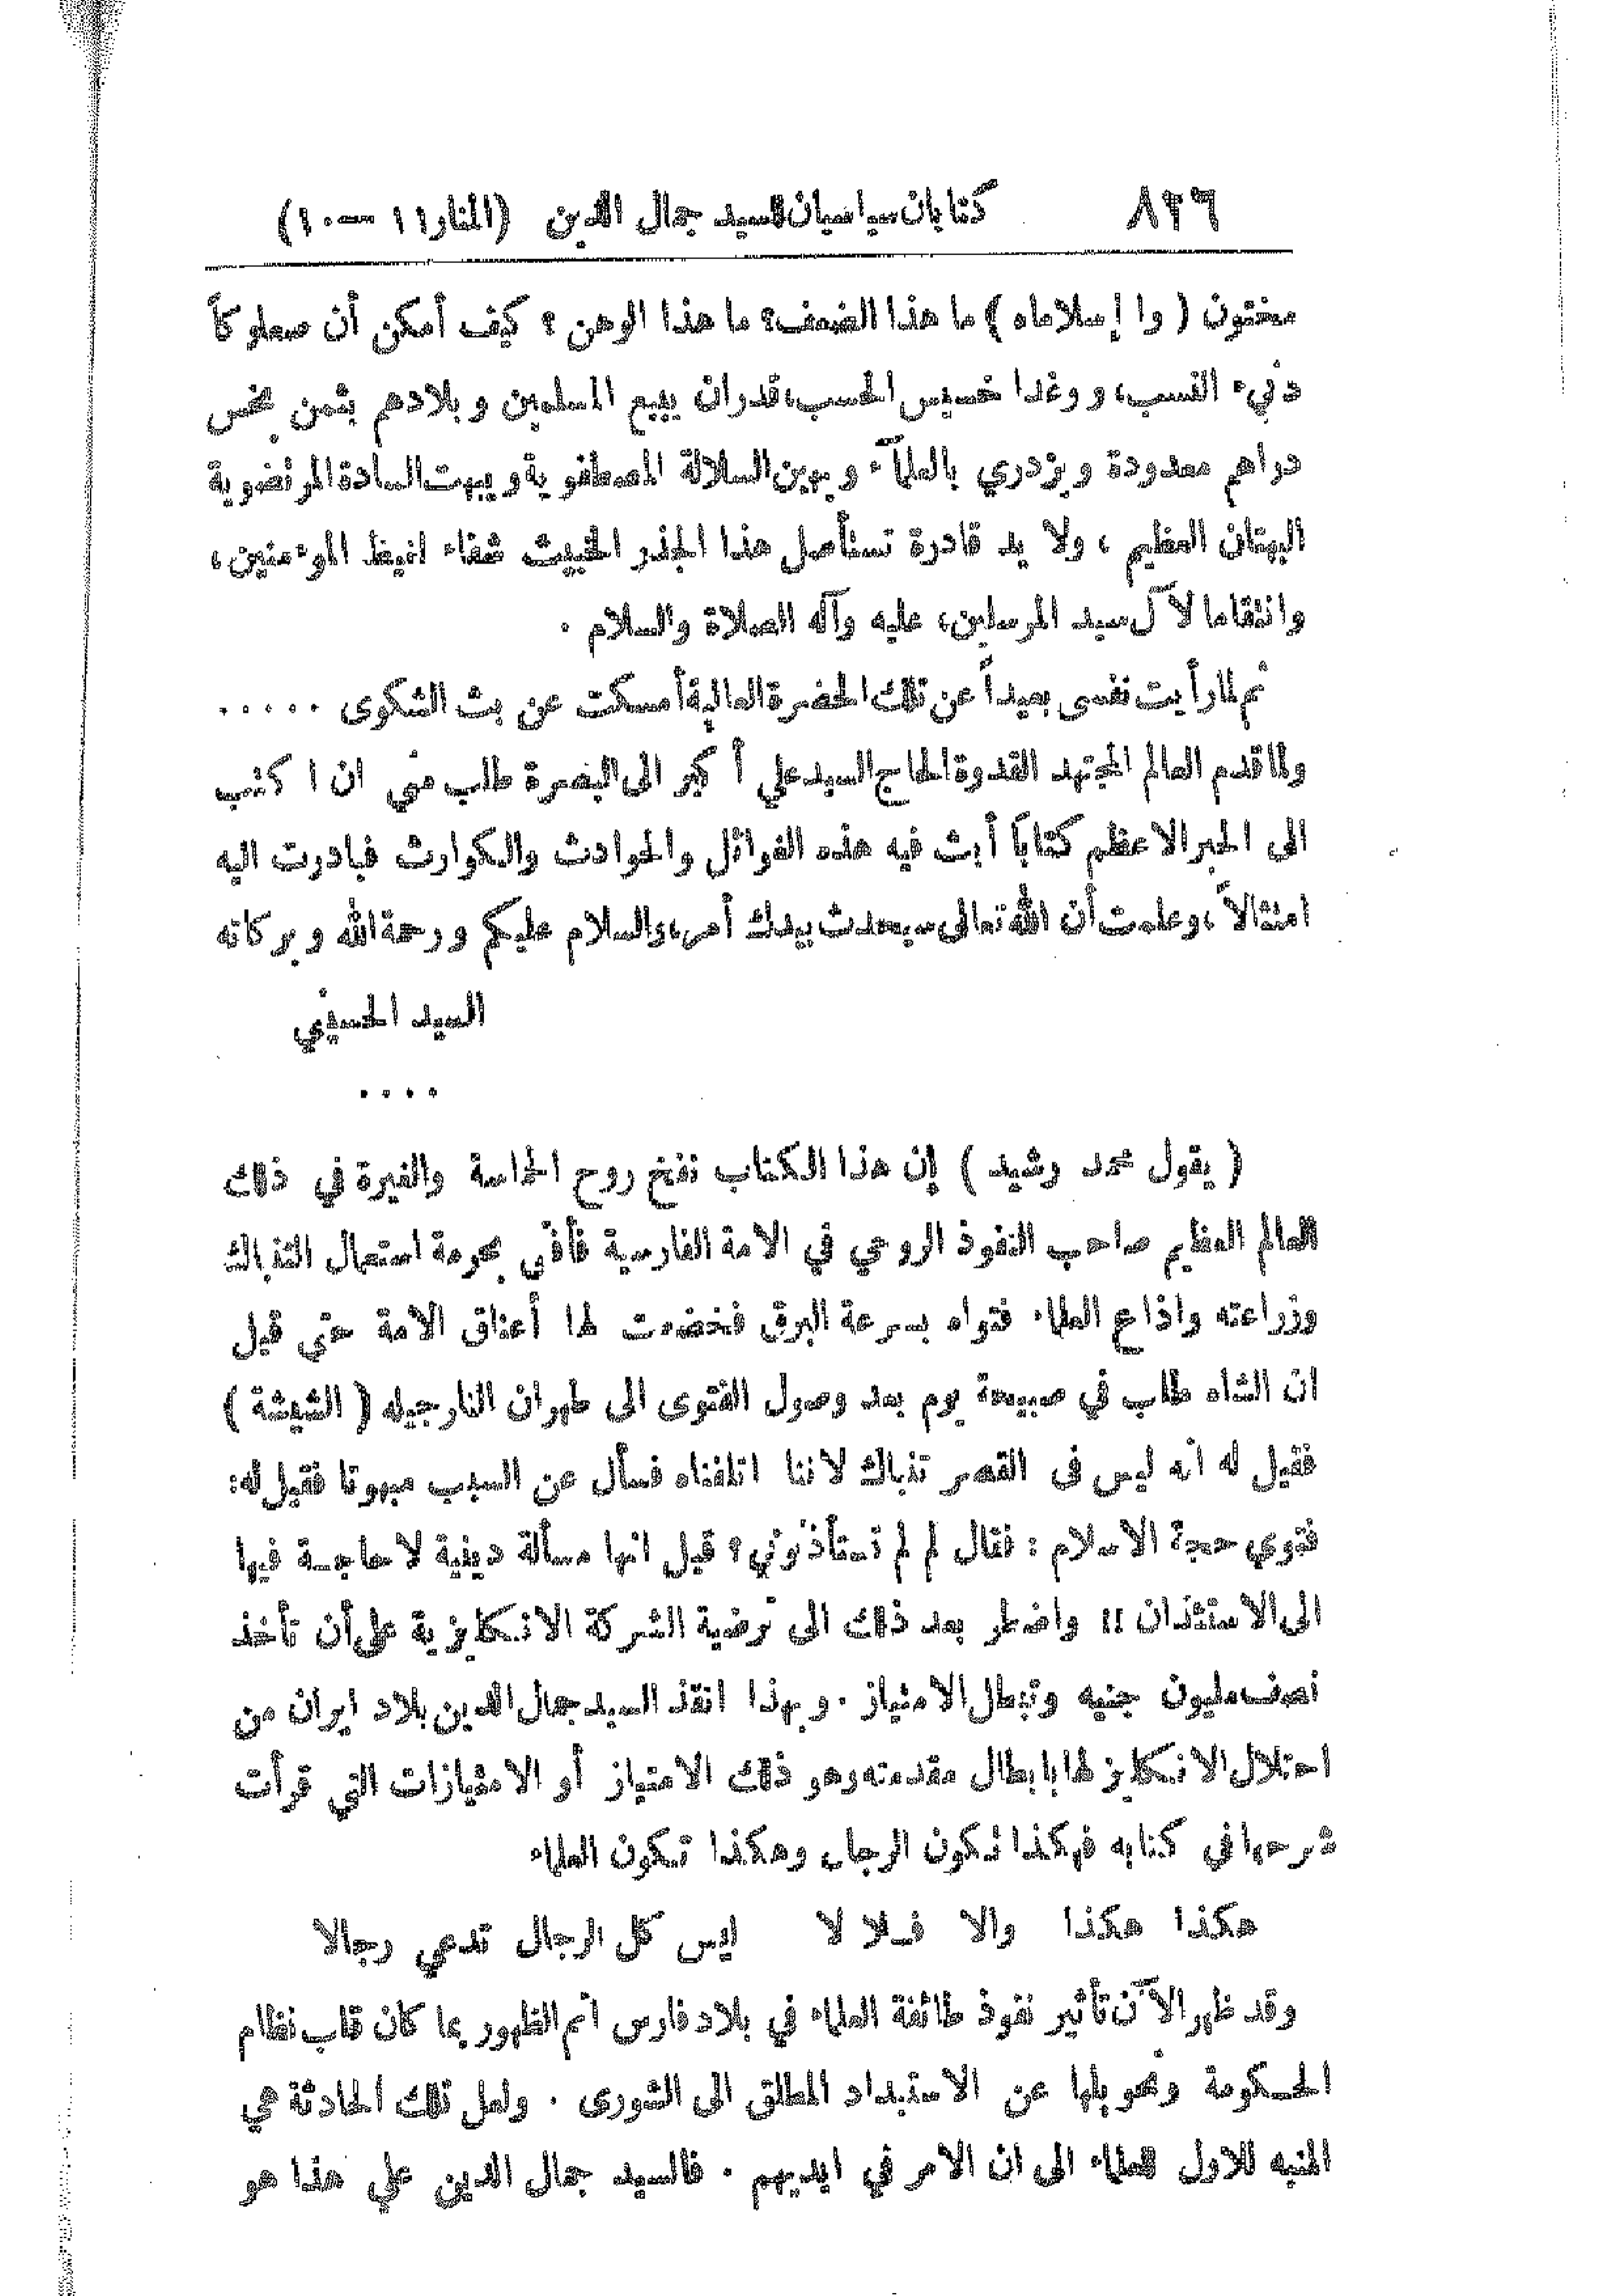 ٨٢٦ كتابان سياسيان للسيد جمال الدين (المنار ١١ — ١٠)
مختون ( وا إسلاماه ) ما هذا الضعف؟ ما هذا الوهن ؟ كيف أمكن أن صعلوكاً
دنيء النسب، ووغدا خسيس الحسب، قدر ان يبيع المسلمين وبلادهم بثمن بخس
دراهم معدودة ويزدري بالعلمآء ويهين السلالة المصطفوية ويبهت السادة المرتضوية
البهتان العظيم ، ولا يد قادرة تستأصل هذا الجذر الخبيث شفاء لغيظ المؤمنين،
وانتقاما لآل سيد المرسلين، عليه وآله الصلاة والسلام .
ثم لما رأيت نفسى بعيداً عن تلك الحضرة العالية أمسكت عن بث الشكوى . . . . .
ولما قدم العالم المجتهد القدوة الحاج السيد علي أكبر الى البصرة طلب مني ان اكتب
الى الحبر الاعظم كتاباً أبث فيه هذه الغوائل والحوادث والكوارث فبادرت اليه
امتثالاً ، وعلمت أن الله تعالى سيحدث بيدك أمرا، والسلام عليكم ورحمة الله وبركاته
السيد الحسيني
. . . .
( يقول محمد رشيد ) إن هذا الكتاب نفخ روح الحماسة والغيرة في ذلك
العالم العظيم صاحب النفوذ الروحي في الامة الفارسية فأفتى بحرمة استعمال التنباك
وزراعته واذاع العلماء فتواه بسرعة البرق فخضعت لها أعناق الامة حتى قيل
ان الشاه طلب في صبيحة يوم بعد وصول الفتوى الى طهران النارجيله ( الشيشة )
فقيل له انه ليس فى القصر تنباك لاننا اتلفناه فسأل عن السبب مبهوتا فقيل له:
فتوي حجة الاسلام : فقال لم لم تستأذنوني؟ قيل انها مسألة دينية لا حاجة فيها
الى الاستئذان !! واضطر بعد ذلك الى ترضية الشركة الانكليزية على أن تأخذ
نصف مليون جنيه وتبطل الامتياز . وبهذا انقذ السيد جمال الدين بلاد ايران من
احتلال الانكليز لها بابطال مقدمته وهو ذلك الامتياز أو الامتيازات التي قرأت
شرحها في كتابه فهكذا تكون الرجال وهكذا تكون العلماء
هكذا هكذا والا فلا لا ليس كل الرجال تدعي رجالا
وقد ظهر الآن تأثير نفوذ طائفة العلماء في بلاد فارس اتم الظهور بما كان قلب نظام
الحكومة وتحويلها عن الاستبداد المطلق الى الشورى . ولعل تلك الحادثة هي
المنبه للاول للعلماء الى ان الامر في ايديهم . فالسيد جمال الدين علي هذا هو